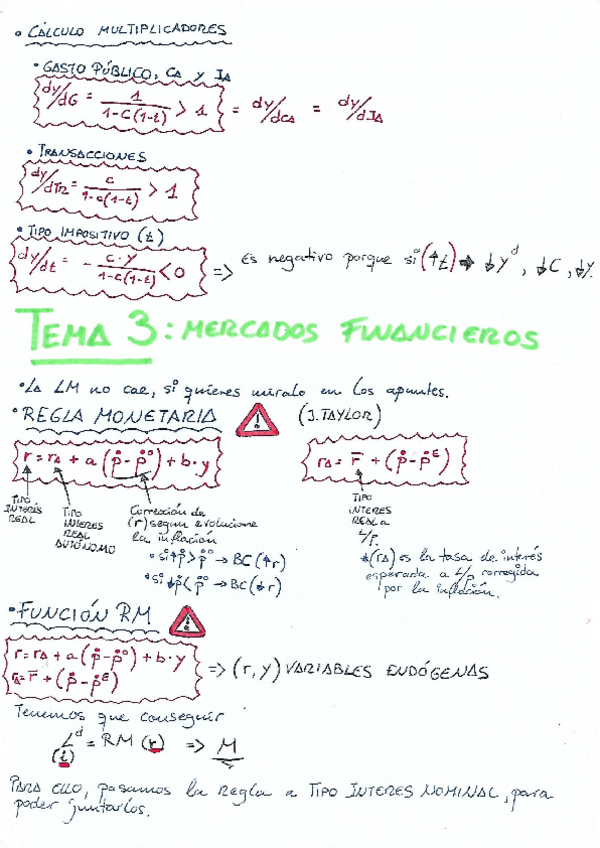 • CÁLCULO MULTIPLICADORES
• GASTO PÚBLICO, CA y IA
dy/dG = 1/(1-c(1-t)) > 1 = dy/dCA = dy/dIA
• TRANSACCIONES
dy/dTR = c/(1-c(1-t)) > 1
• TIPO IMPOSITIVO (t)
dy/dt = - c·y/(1-c(1-t)) < 0 => es negativo porque si (↑t) → ↓y^d, ↓C, ↓y.
TEMA 3: MERCADOS FINANCIEROS
• LA LM no cae, si quieres miralo en los apuntes.
• REGLA MONETARIA (J. TAYLOR)
r = rA + a (ṗ - ṗ⁰) + b·y rA = r̄ + (ṗ - ṗᴱ)
TIPO INTERÉS REAL
TIPO INTERES REAL AUTÓNOMO
Corrección de (r) segun evolucione la inflación
• si ↑ṗ > ṗ⁰ → BC (↑r)
• si ↓ṗ < ṗ⁰ → BC (↓r)
TIPO INTERES REAL a L/p.
(rA) es la tasa de interés
esperada a L/p corregida
por la inflación.
• FUNCIÓN RM
r = rA + a (ṗ - ṗ⁰) + b·y
rA = r̄ + (ṗ - ṗᴱ) => (r, y) VARIABLES ENDÓGENAS
Tenemos que conseguir
L^d (i) = RM (r) => M
PARA ELLO, pasamos la regla a TIPO INTERES NOMINAL, para
poder juntarlos.